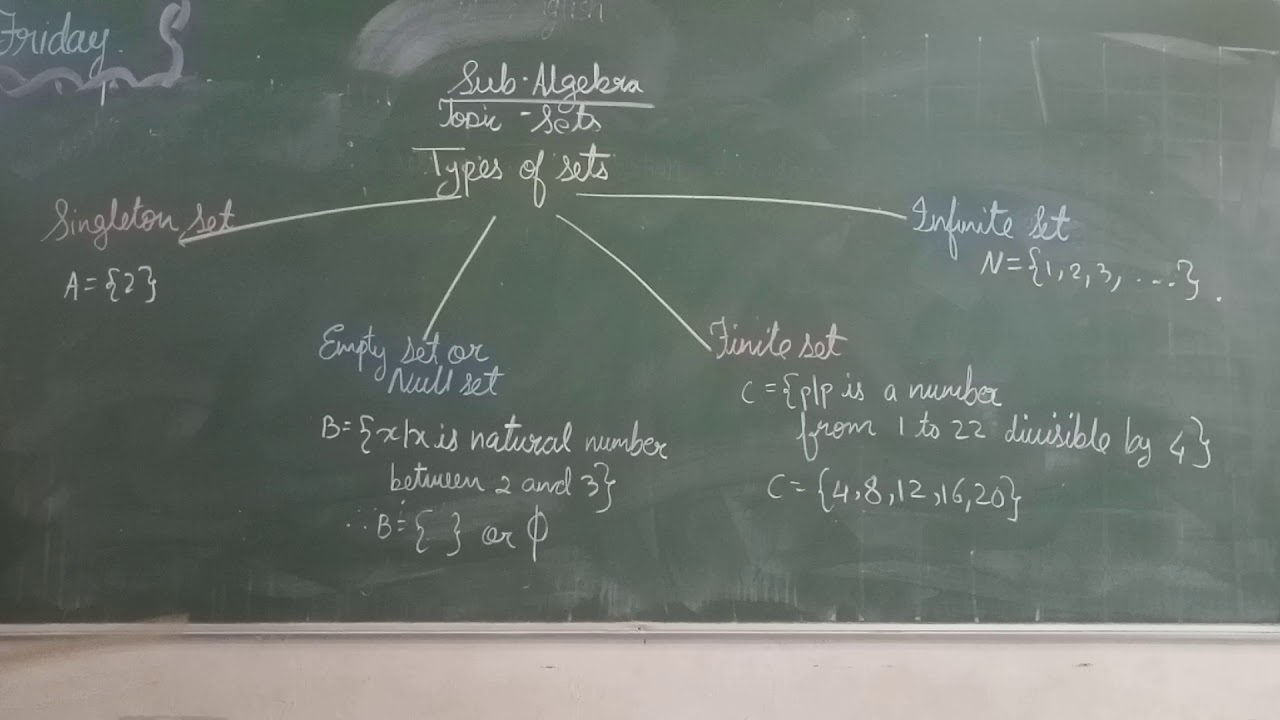 Friday.
Sub-Algebra
Topic - Sets
Types of sets
Singleton set
A = {2}
Empty set or
Null set
B = {x/x is natural number
between 2 and 3}
∴ B = { } or ϕ
Finite set
C = {p/p is a number
from 1 to 22 divisible by 4}
C = {4, 8, 12, 16, 20}
Infinite set
N = {1, 2, 3, ....}.